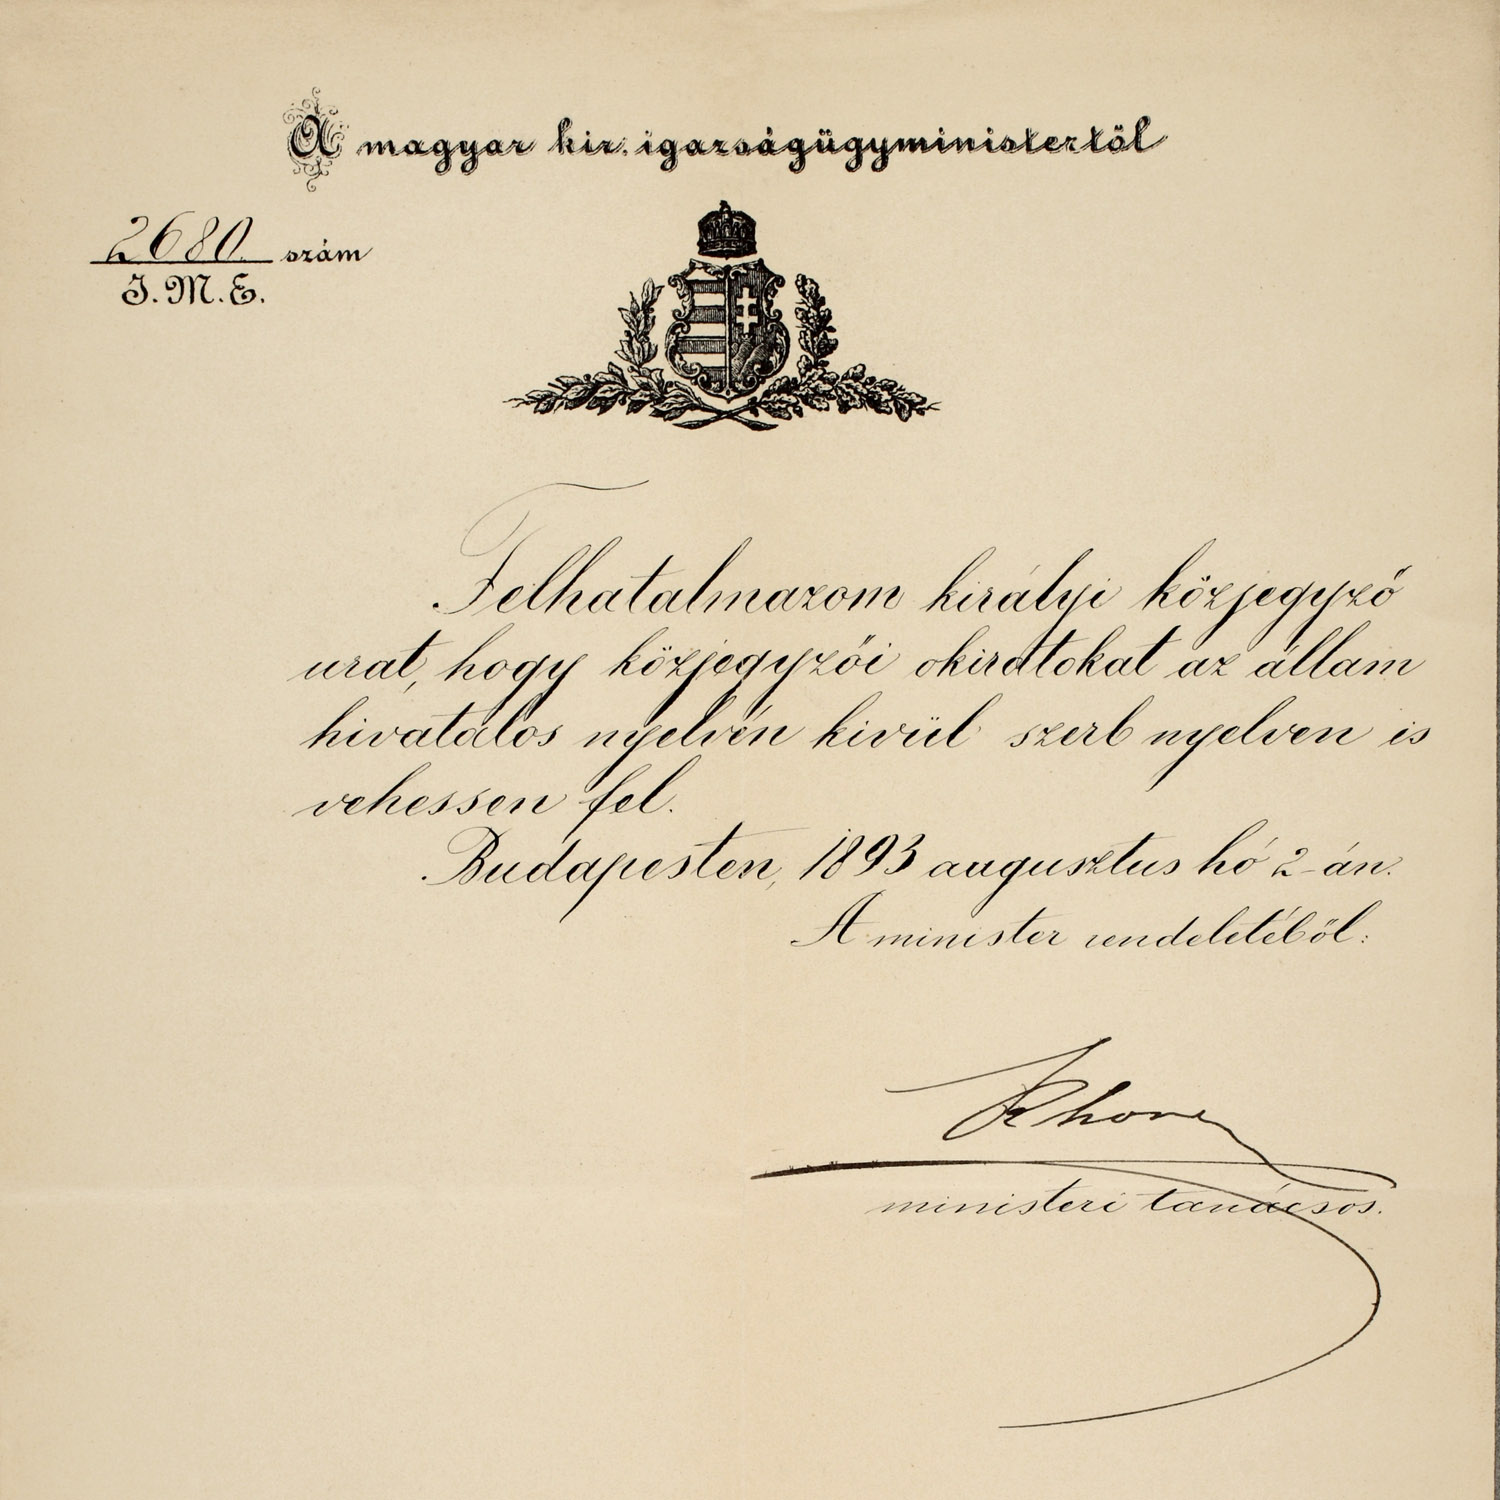 A magyar kir. igazságügyministertől
2680. szám
I.M.E.
Felhatalmazom királyi közjegyző
urat, hogy közjegyzői okiratokat az állam
hivatalos nyelvén kivül szerb nyelven is
vehessen fel.
Budapesten, 1893 augusztus hó 2-án.
A minister rendeletéből:
ministeri tanácsos.